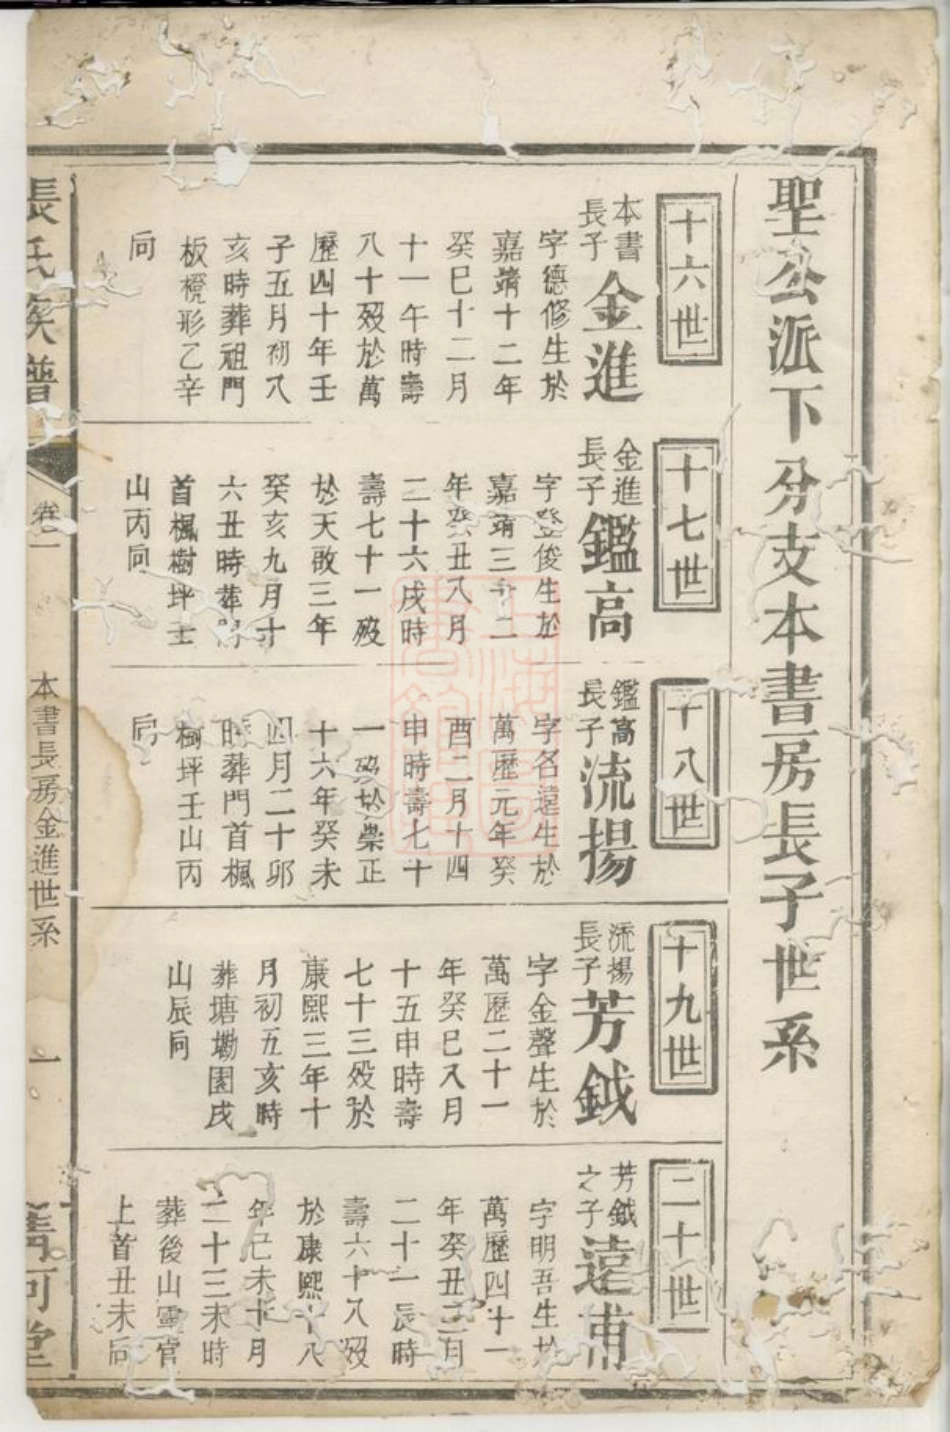 聖公派下分支本書房長子世系
十六世
本書
長子
金進
字德修生於
嘉靖十二年
癸巳十二月
十一午時壽
八十歿於萬
歷四十年壬
子五月初八
亥時葬祖門
板櫈形乙辛
向
十七世
金進
長子
鑑高
字登俊生於
嘉靖三十二
年癸丑八月
二十六戌時
壽七十一歿
於天啟三年
癸亥九月十
六丑時葬門
首楓樹坪壬
山丙向
十八世
鑑高
長子
流揚
字名遠生於
萬歷元年癸
酉二月十四
申時壽七十
一歿於崇正
十六年癸未
四月二十卯
時葬門首楓
樹坪壬山丙
向
十九世
流揚
長子
芳鉞
字金聲生於
萬歷二十一
年癸巳八月
十五申時壽
七十三歿於
康熙三年十
月初五亥時
葬塘墈園戌
山辰向
二十世
芳鉞
之子
遠甫
字明吾生於
萬歷四十一
年癸丑二月
二十一辰時
壽六十八歿
於康熙十八
年己未十月
二十三未時
葬後山靈官
上首丑未向
張氏族譜
卷二
本書長房金進世系
一
清河堂